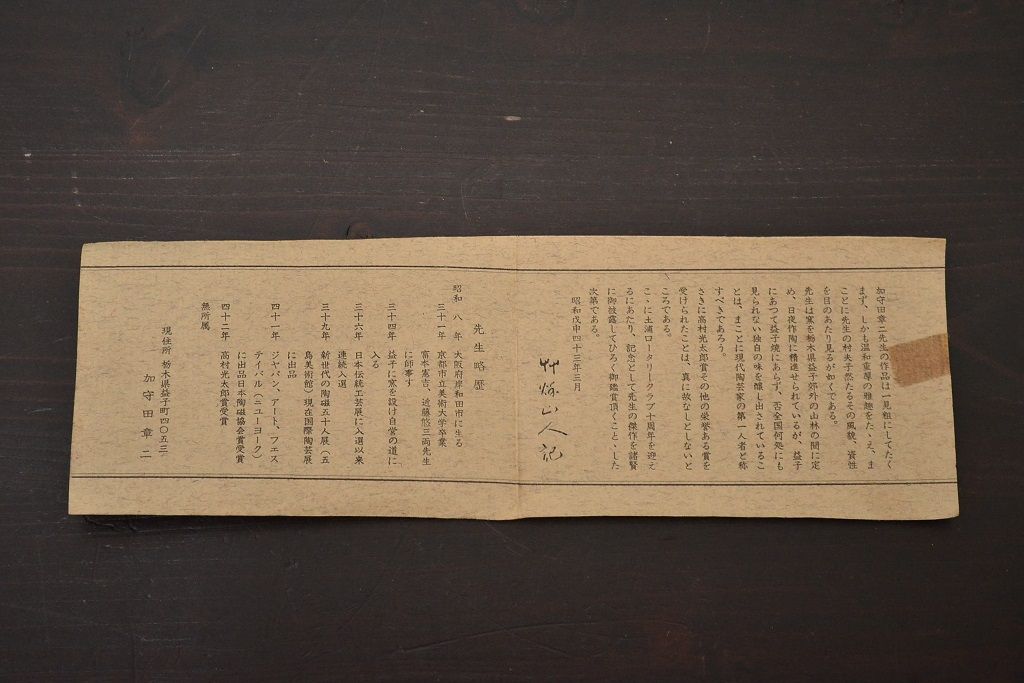 加守田章二先生の作品は一見粗にしてたく
まず、しかも温和重厚の雅趣をたゝえ、ま
ことに先生の村夫子然たるその風貌、資性
を目のあたり見るが如くである。
先生は窯を栃木県益子郊外の山林の間に定
め、日夜作陶に精進せられているが、益子
にあつて益子焼にあらず、否全国何処にも
見られない独自の味を醸し出されているこ
とは、まことに現代陶芸家の第一人者と称
すべきであろう。
さきに高村光太郎賞その他の栄誉ある賞を
受けられたことは、真に故なしとしないと
ころである。
こゝに土浦ロータリークラブ十周年を迎え
るにあたり、記念として先生の傑作を諸賢
に御披露してひろく御鑑賞頂くことゝした
次第である。
昭和戊申四十三年三月
山人記
先生略歴
昭和 八 年 大阪府岸和田市に生る
三十一年 京都市立美術大学卒業
富本憲吉、近藤悠三両先生
に師事す
三十四年 益子に窯を設け自営の道に
入る
三十六年 日本伝統工芸展に入選以来
連続入選
三十九年 新世代の陶磁五十人展（五
島美術館）現在国際陶芸展
に出品
四十一年 ジヤパン、アート、フエス
テイバル（ニユーヨーク）
に出品日本陶磁協会賞受賞
四十二年 高村光太郎賞受賞
無所属
現住所 栃木県益子町四〇五三
加守田章二